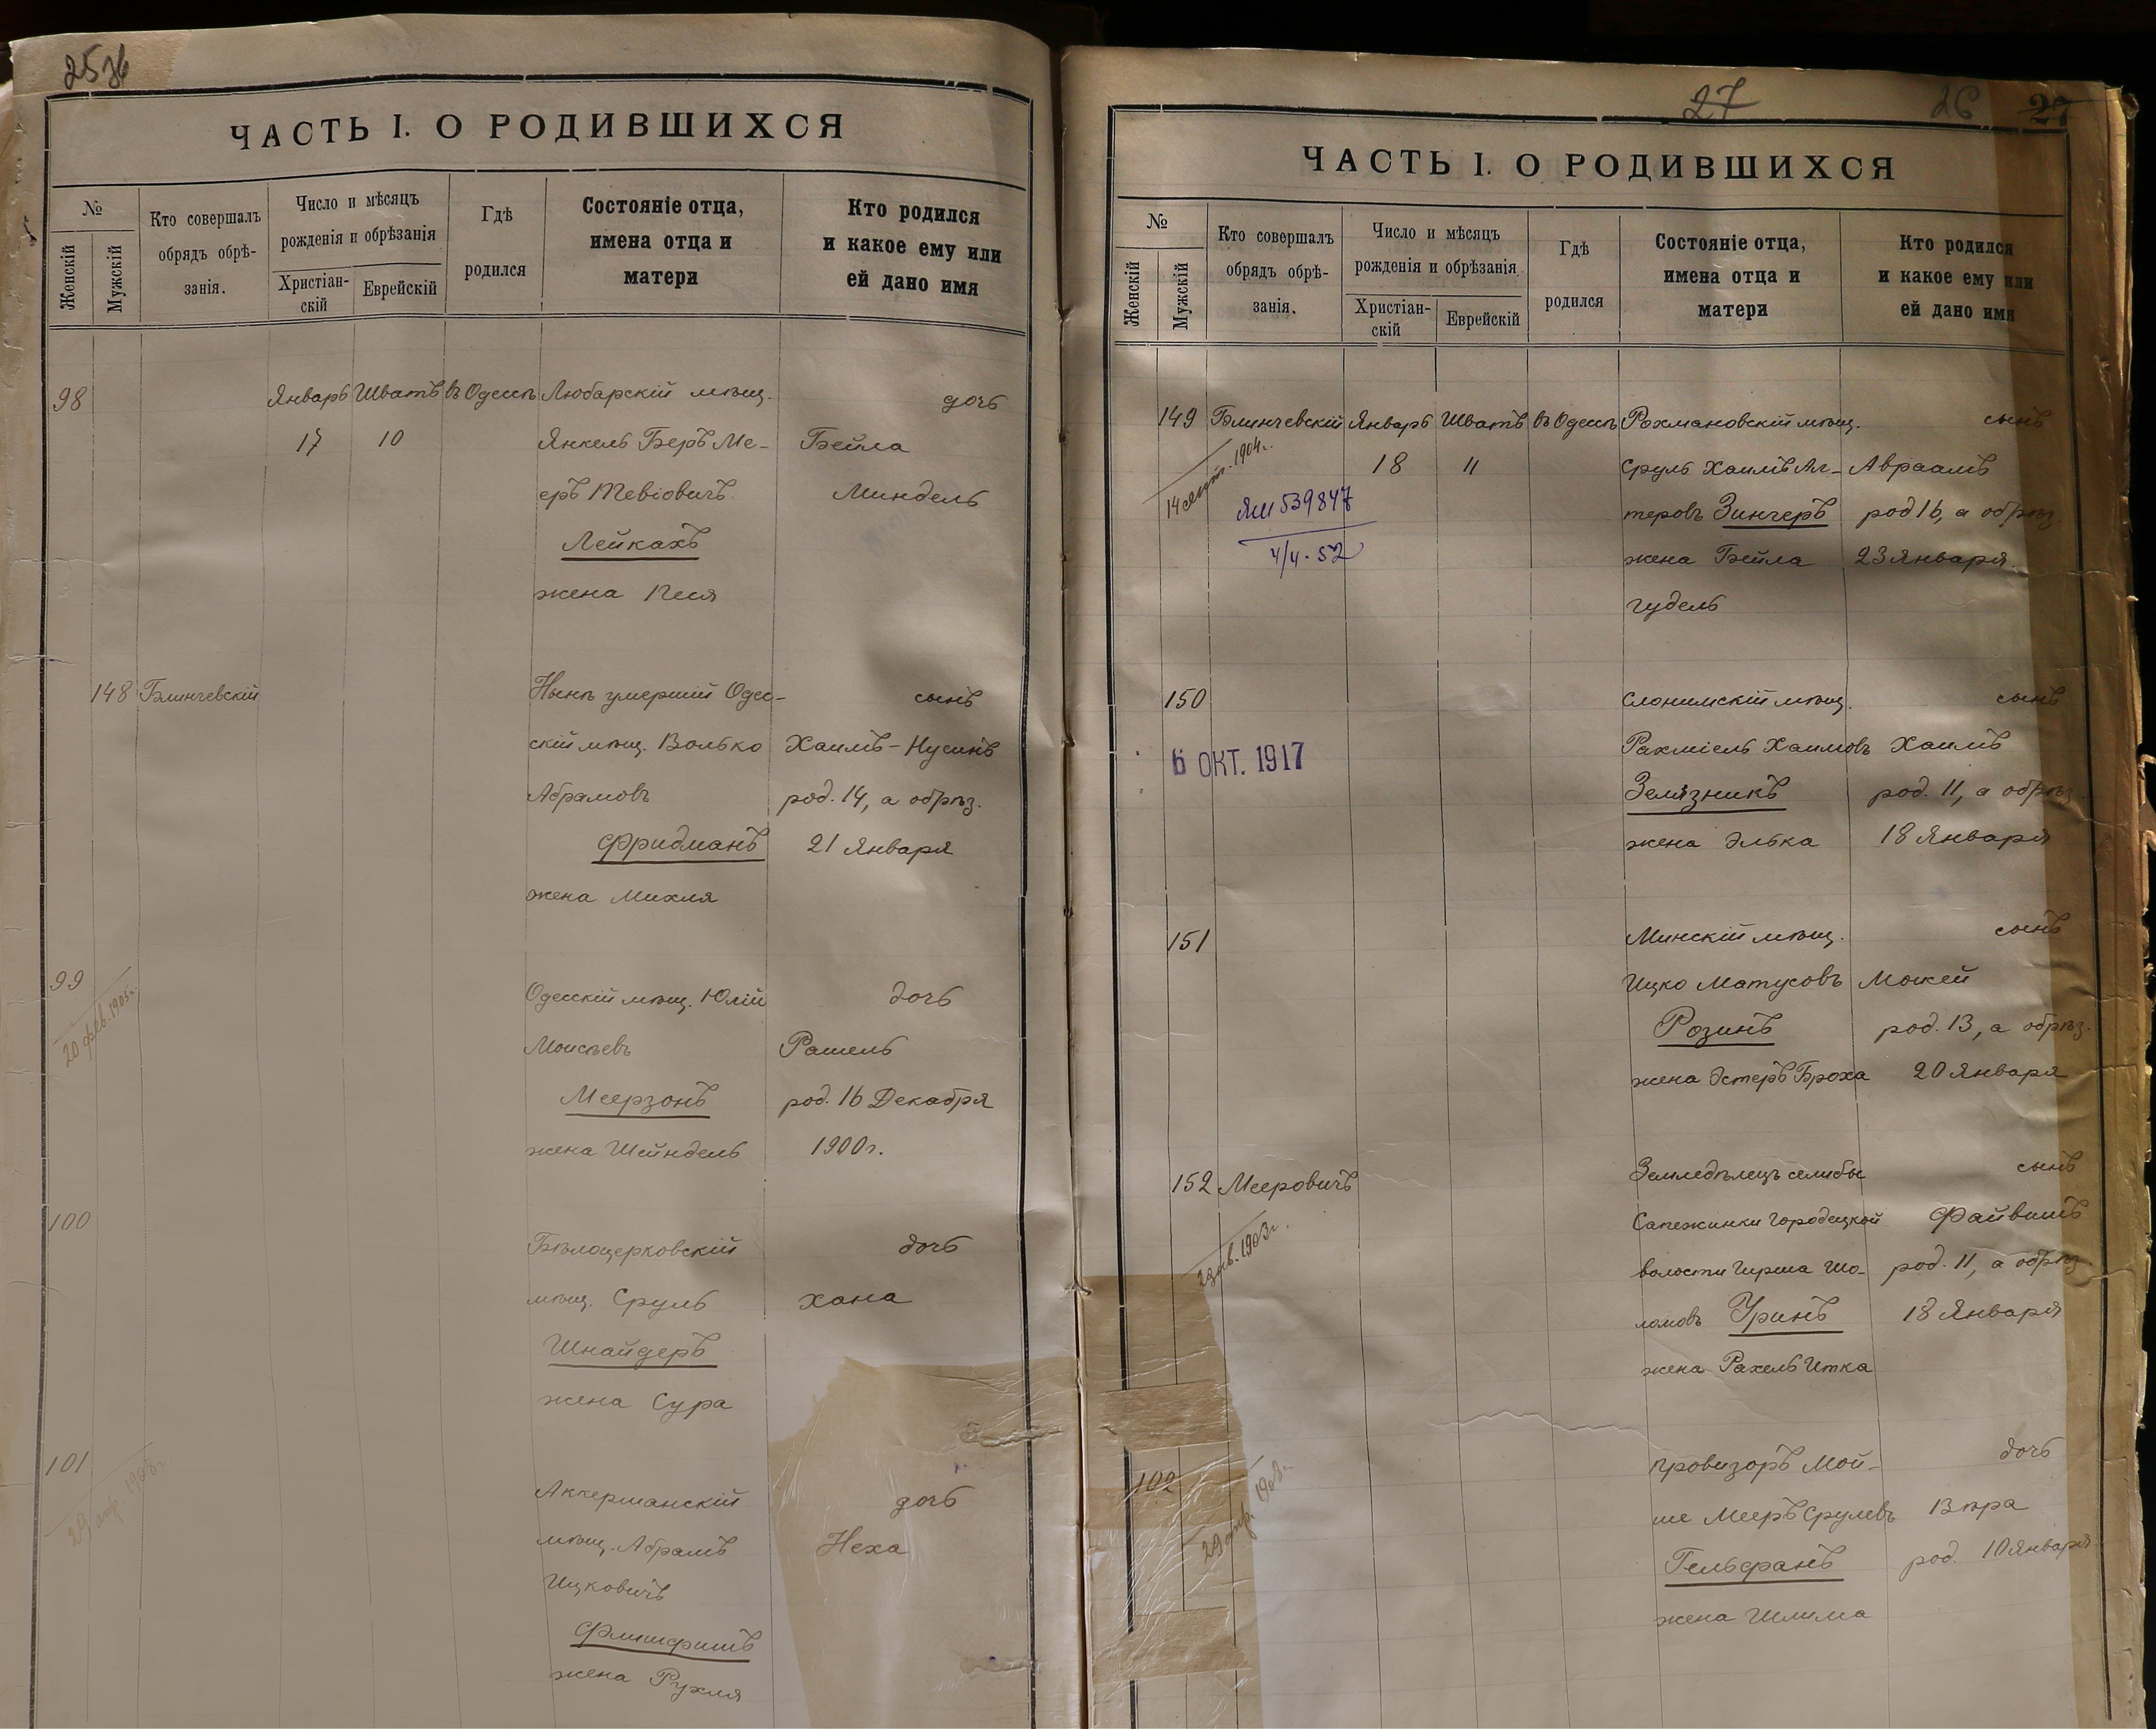 ЧАСТЬ I. О РОДИВШИХСЯ
№
Женскій
Мужскій
Кто совершалъ
обрядъ обрѣ-
занія.
Число и мѣсяцъ
рожденія и обрѣзанія
Христіан-
скій
Еврейскій
Гдѣ
родился
Состояніе отца,
имена отца и
матери
Кто родился
и какое ему или
ей дано имя
98 Январь Шватъ въ Одессѣ Любарскій мѣщ. дочь
17 10 Янкель Беръ Ме- Бейла
еръ Тевіовичъ Миндель
Лейкахъ
жена Песя
148 Блинчевскій Нынѣ умершій Одес- сынъ
скій мѣщ. Волько Хаимъ-Нусинъ
Абрамовъ род. 14, а обрѣз.
Фридманъ 21 Января
жена Михля
99 Одесскій мѣщ. Юлій дочь
20 фев. 1905г.
Моисѣевъ Рашель
Меерзонъ род. 16 Декабря
жена Шейндель 1900г.
100 Бѣлоцерковскій дочь
мѣщ. Сруль Хана
Шнайдеръ
жена Сура
101 Аккерманскій дочь
1908г.
мѣщ. Абрамъ Неха
Ицковичъ
Флишфишъ
жена Рухля
27 26 27
ЧАСТЬ I. О РОДИВШИХСЯ
№
Женскій
Мужскій
Кто совершалъ
обрядъ обрѣ-
занія.
Число и мѣсяцъ
рожденія и обрѣзанія
Христіан-
скій
Еврейскій
Гдѣ
родился
Состояніе отца,
имена отца и
матери
Кто родился
и какое ему или
ей дано имя
149 Блинчевскій Январь Шватъ въ Одессѣ Рохмановскій мѣщ. сынъ
14 сент. 1904г.
18 11 Сруль Хаимъ Ал- Авраамъ
539847 теровъ Зингеръ род 16, а обрѣз.
4/4-52 жена Бейла 23 Января
Гудель
150 Слонимскій мѣщ. сынъ
6 ОКТ. 1917 Рахміель Хаимовъ Хаимъ
Зелязникъ род. 11, а обрѣз.
жена Элька 18 Января
151 Минскій мѣщ. сынъ
Ицко Матусовъ Мокей
Розинъ род. 13, а обрѣз.
жена Эстеръ Броха 20 Января
152 Мееровичъ Земледѣлецъ селибы сынъ
1903г.
Сапежинки Городецкой Файвишъ
волости Гирша Шо- род. 11, а обрѣз
ломовъ Уринъ 18 Января
жена Рахель Итка
102 Провизоръ Мой- дочь
29 апр. 1908г.
ше Мееръ Срулевъ Вѣра
Гельфанъ род. 10 Января
жена Шлима